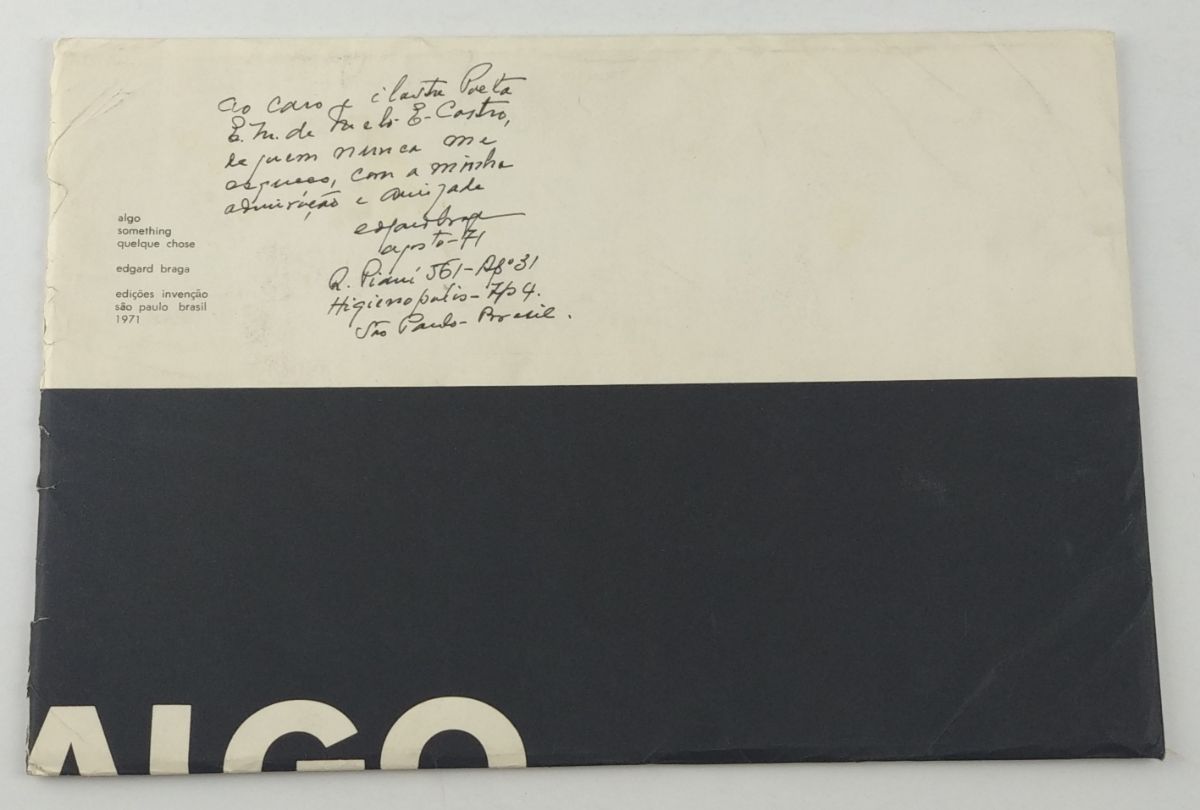 ao caro e ilustre Poeta
E. M. de Melo E. Castro,
de quem nunca me
esqueço, com a minha
admiração e amizade
edgard braga
agosto-71
R. Piauí 561-Apº31
Higienopolis-ZP4.
São Paulo-Brasil.
algo
something
quelque chose
edgard braga
edições invenção
são paulo brasil
1971
ALGO